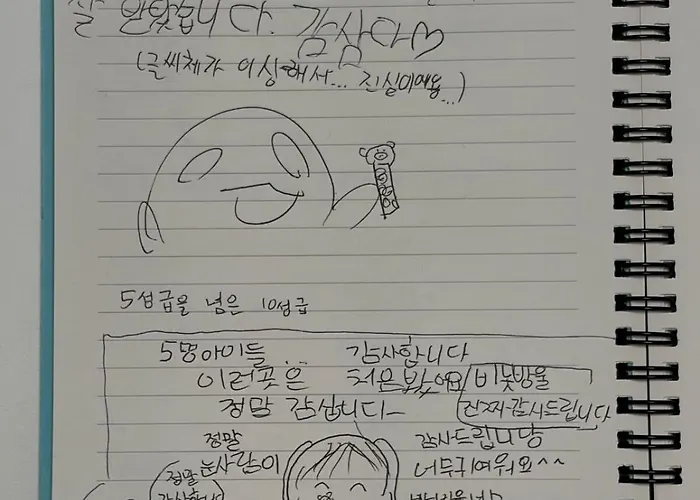 잘 받았습니다. 감삼다♡
(글씨체가 이상해서... 진심이에용...)
5성급을 넘은 10성급
5명아이들... 감사합니다
이런곳은 처음봤어요 / 비눗방울
정말 감십니다~ 진짜 감사드립니다
정말 감사드립니당
눈사람이 너무귀여워요^^
정말